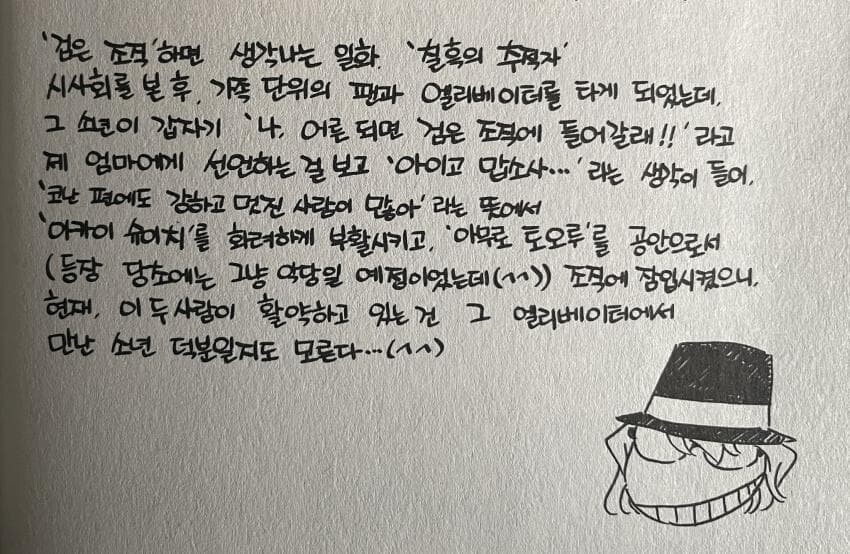 '검은 조직'하면 생각나는 일화. '칠흑의 추적자'
시사회를 본 후, 가족 단위의 팬과 엘리베이터를 타게 되었는데,
그 소년이 갑자기 '나, 어른 되면 검은 조직에 들어갈래!!'라고
제 엄마에게 선언하는 걸 보고 '아이고 맙소사…'라는 생각이 들어,
'코난 편에도 강하고 멋진 사람이 많아'라는 뜻에서
'아카이 슈이치'를 화려하게 부활시키고, '아무로 토오루'를 공안으로서
(등장 당초에는 그냥 악당일 예정이었는데(^^)) 조직에 잠입시켰으니,
현재, 이 두 사람이 활약하고 있는 건 그 엘리베이터에서
만난 소년 덕분일지도 모른다…(^^)